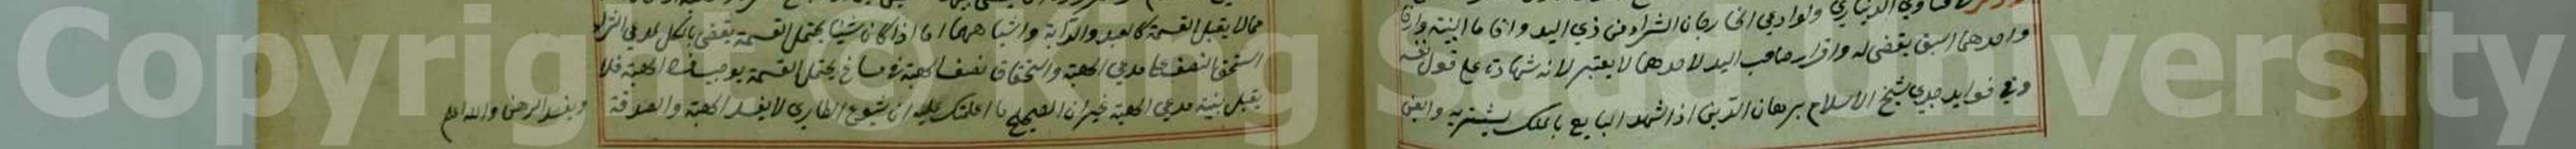 فتاوي الديناري ولو ادعى الخارجان الشراء من ذي اليد واقاما البينة وارخا
واحدهما اسبق يقضى له واقرار صاحب اليد لاحدهما لا يعتبر لانه شهادة على قول نفسه
وفي فوايد جدي شيخ الاسلام برهان الدين اذا شهد البايع بالملك لمشتريه والعين
مما لا يقبل القسمة كالعبد والدابة واشباههما اما اذا كان شيئا يحتمل القسمة يقضى بالكل لمدعي الشراء
استحق النصف مدعي الهبة واستحقاق نصف الهبة في مشاع يحتمل القسمة يوجب فساد الهبة فلا
يقبل بينة مدعي الهبة غير ان الصحيح ما اعلمتك عليه ان شيوع الطاري لا يفسد الهبة والصدقة
ويفسد الرهن والله اعلم
Copyright © King Saud University